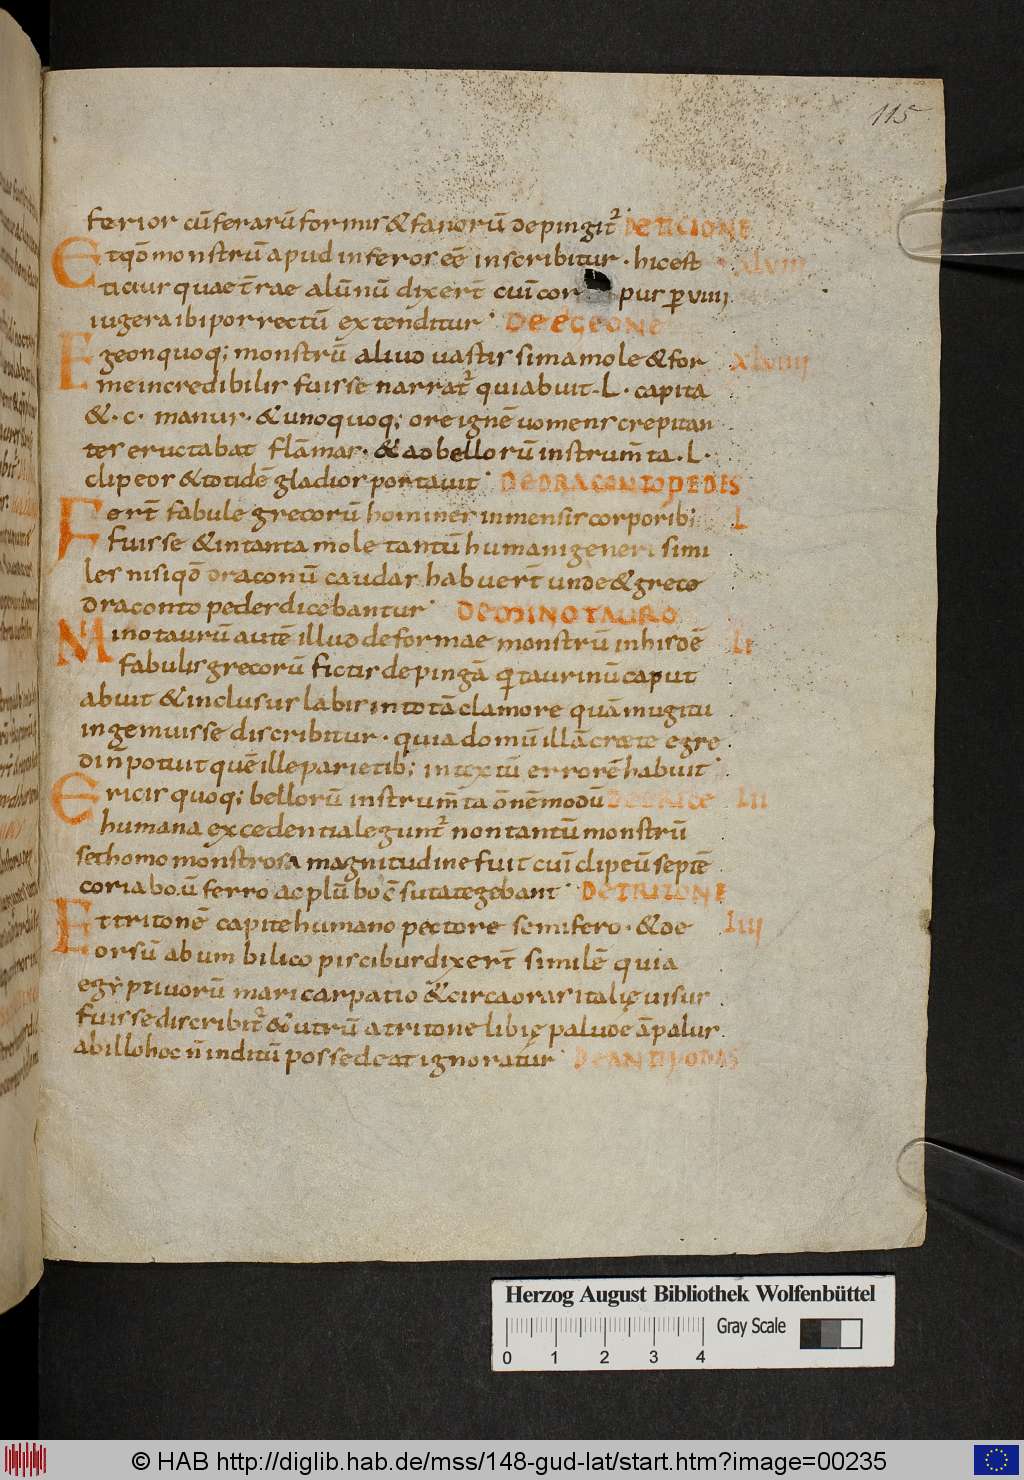 115
ferior cū ferarū formis & fanorū depingit̄ DE TICIONE
Et qđ monstrū apud inferos eē inscribitur · hic est xlviii
ticius quae t̄rae alūnū dixer̄t cui cor pus p viiij
iugera ibi porrectū extenditur · DE EGEONE
Egeon quoq; monstrū aliud vastissima mole & for xlviiij
me incredibilis fuisse narrat̄ qui abuit · L · capita
& · c · manus · & unoquoq; ore ignē vomens crepitan
tes eructabat flāmas · & ad bellorū instrum̄ta · L ·
clipeos & totidē gladios portauit · DE DRACONTOPEDES
Fer̄t fabule grecorū homines inmensis corporib; L
fuisse & in tanta mole tantū humani generi simi
les nisi qđ draconū caudas habuer̄t unde & grece
dracontopedes dicebantur · DE MINOTAURO
Minotaurū autē illud deforme monstrū in hisdē Li
fabulis grecorū fictis depingā q taurinū caput
abuit & inclusus labirinto tā clamore quā mugitu
ingemuisse discribitur · quia domū illā crete egre
di n̄ potuit quē ille parietib; intextū errorē habuit ·
Ericis quoq; bellorū instrum̄ta om̄nē modū DE ERICE Lii
humana excedentia legunt̄ non tantū monstrū
set homo monstrosa magnitudine fuit cui clipeū septē
coria boū ferro ac plūbo c̄suta tegebant · DE TRITONE
Et tritonē capite humano pectore semifero · & de Liij
orsū ab umbilico piscibus dixer̄t similē quia
egyptiuorū mari carpatio & circa oras italię uisus
fuisse discribit̄ & utrū a tritone libię palude an̄ palus
ab illo hoc n̄ inditū possedeat ignoratur · DE ANTIPODAS
Herzog August Bibliothek Wolfenbüttel
Gray Scale
0 1 2 3 4
© HAB http://diglib.hab.de/mss/148-gud-lat/start.htm?image=00235